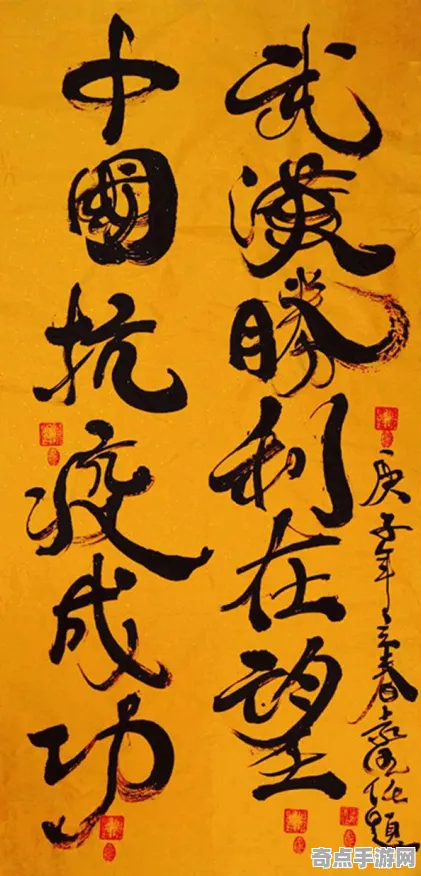 武漢勝利在望
中國抗疫成功
庚子年立春袁國仁題
奇点手游网